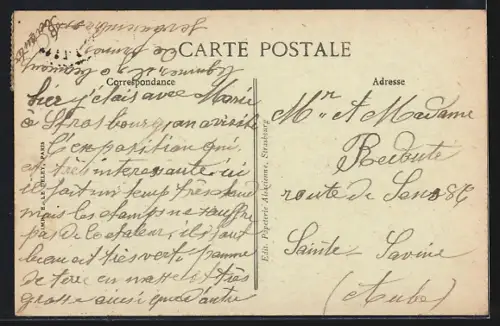 CARTE POSTALE
Correspondance
Adresse
hier j'étais avec Marie
à Strasbourg, on a visité
l'exposition qui
est très intéressante, ici
il fait un temps très chaud
mais les champs ne souffre
pas de la chaleur, ils sont
beau et très vert, pomme
de terre en masse et très
grosse ainsi que d'autre
Mr et Madame
Redouté
route de Sens 86
Sainte Savine
(Aube)
Edit. Papeterie Alsacienne, Strasbourg
IMP. E. LE DELEY, PARIS